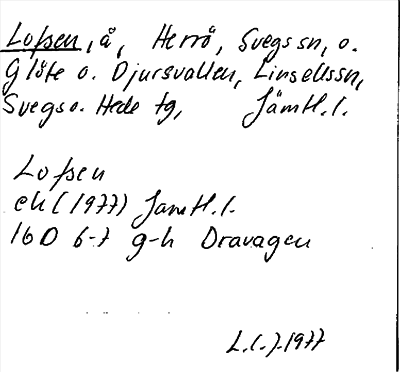 Lofsen, å, Herrö, Svegs sn, o.
Glöte o. Djursvallen, Linsells sn,
Svegs o. Hede tg, Jämtl. l.
Lofsen
ek (1977) Jämtl. l.
16D 6-7 g-h Dravagen
L. (.). 1977